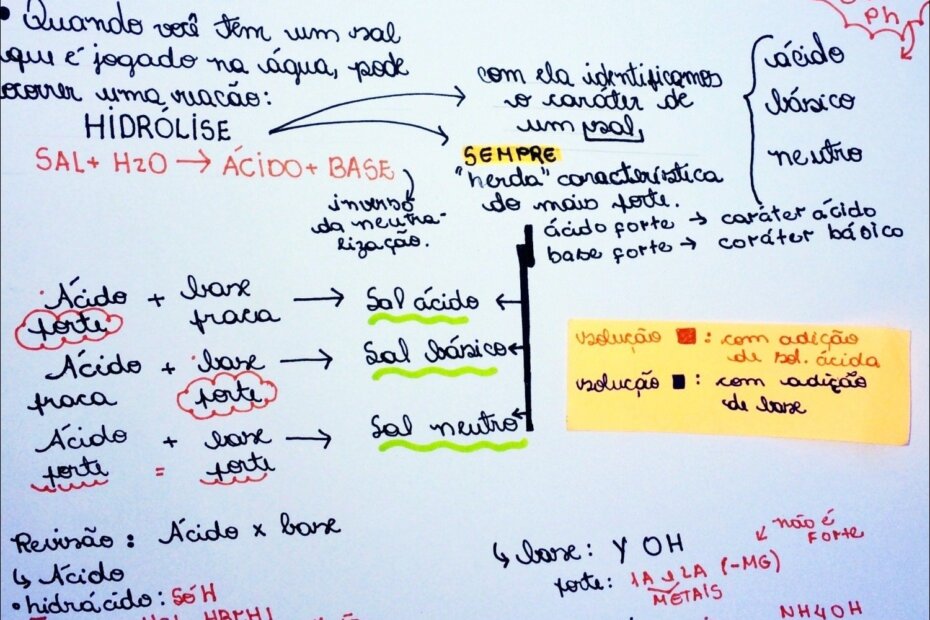 • Quando você têm um sal
que é jogado na água, pode
ocorrer uma reação:
HIDRÓLISE
SAL + H2O → ÁCIDO + BASE
inverso
da neutra-
lização.
com ela identificamos
o caráter de
um sal
ácido
básico
neutro
ph
SEMPRE
"herda" característica
do mais forte.
ácido forte → caráter ácido
base forte → caráter básico
Ácido + base → Sal ácido
forte fraca
Ácido + base → Sal básico
fraca forte
Ácido + base → Sal neutro
forte = forte
solução ■ : com adição
de sol. ácida
solução ■ : com adição
de base
Revisão : Ácido x base
↳ Ácido
• hidrácido : só H
↳ base : Y OH
não é
forte
forte : 1A e 2A (-MG)
METAIS
NH4OH